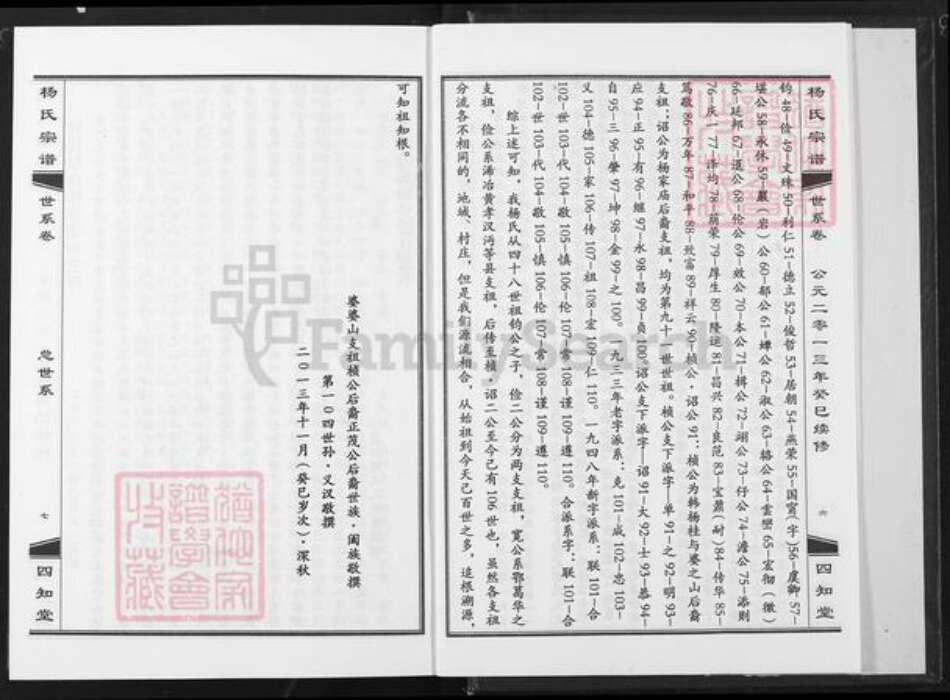 杨氏宗谱 世系卷 公元二零一三年癸巳续修 六 四知堂
钧 48—俭 49—文珠 50—利仁 51—德立 52—俊哲 53—居朝 54—燕荣 55—国宾(字)56—虞卿 57—
堪公 58—承休 59—巖(岩)公 60—郁公 61—婵公 62—淑公 63—辂公 64—云峦 65—宏彻(徹)
66—廷邦 67—道公 68—伦公 69—效公 70—本公 71—楫公 72—翊公 73—仔公 74—澹公 75—添则
76—庆一 77—泽均 78—荫荣 79—厚生 80—隆运 81—昌兴 82—良范 83—宝鼐(耐)84—传华 85—
笃敬 86—万年 87—和平 88—致富 89—祥云 90—桢公·诏公 91：桢公为韩杨桂与婆之山后裔
支祖；诏公为杨家庙后裔支祖，均为第九十一世世祖。桢公支下派字—单 91—之 92—明 93—
应 94—正 95—有 96—继 97—永 98—昌 99—贞 100°诏公支下派字——诏 91—大 92—士 93—恭 94—
自 95—三 96—肇 97—坤 98—金 99—之 100°。九三三年老字派系：克 101—成 102—忠 103—
义 104—德 105—家 106—传 107—祖 108—宏 109—仁 110°一九四八年新字派系：联 101—合
102—世 103—代 104—敬 105—慎 106—伦 107—常 108—谨 109—遵 110°合派系字：联 101—合
102—世 103—代 104—敬 105—慎 106—伦 107—常 108—谨 109—遵 110°
综上述可知，我杨氏从四十八世祖钧公之子，俭二公分为两支支祖，宽公系鄂葛华之
支祖，俭公系浠冶黄孝汉沔等县支祖，后传至桢·诏二公至今已有 106 世也，虽然各支祖
分流各不相同的，地域、村庄，但是我们源流相合，从始祖到今天已百世之多，追根溯源，
杨氏宗谱 世系卷 总世系 七 四知堂
可知祖知根。
婆婆山支祖桢公后裔正茂公后裔世族·阖族敬撰
第一〇四世孙·义汉敬撰
二〇一三年十一月(癸巳岁次)·深秋
FamilySearch